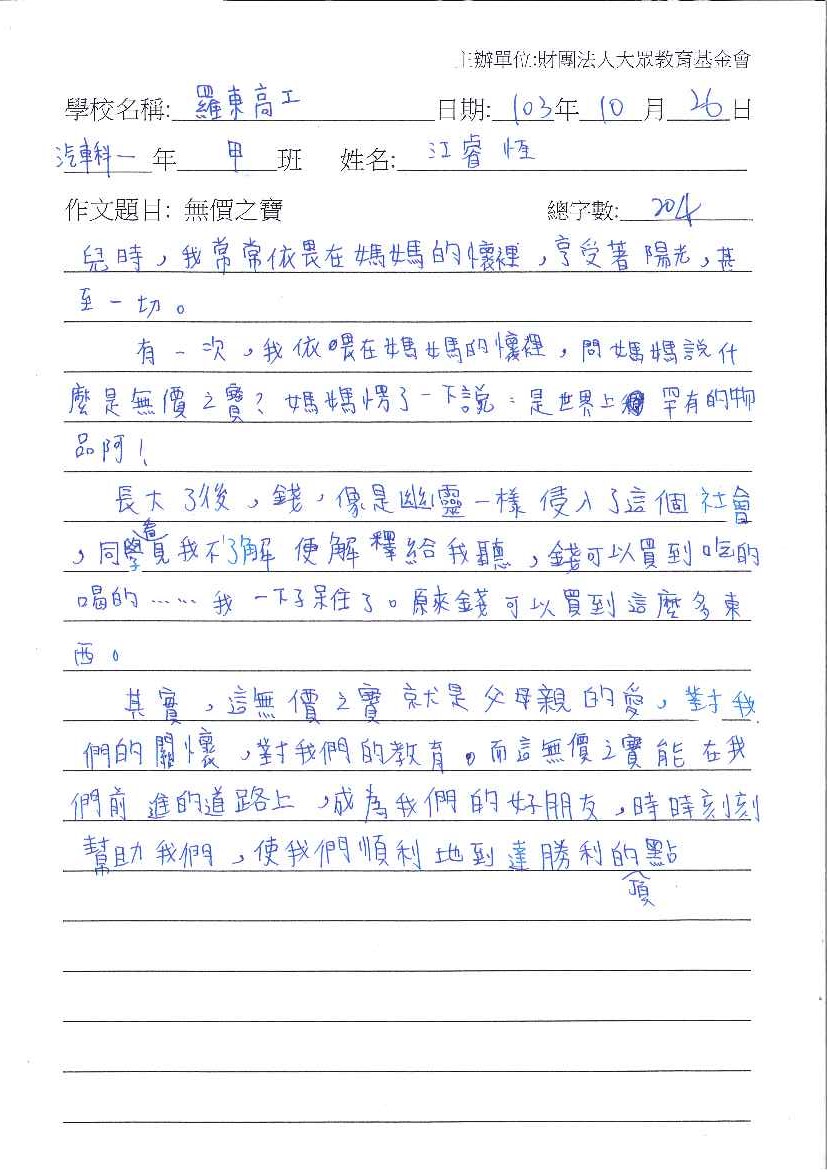 主辦單位:財團法人大眾教育基金會
學校名稱: 羅東高工 日期: 103年 10 月 26 日
汽車科一 年 甲 班 姓名: 江睿恆
作文題目: 無價之寶 總字數: 204
兒時，我常常依畏在媽媽的懷裡，享受著陽光，甚
至一切。
有一次，我依喂在媽媽的懷裡，問媽媽說什
麼是無價之寶？媽媽愣了一下說：是世界上 罕有的物
品阿！
長大了後，錢，像是幽靈一樣侵入了這個社會
，同學看見我不了解便解釋給我聽，錢可以買到吃的
喝的……我一下子呆住了。原來錢可以買到這麼多東
西。
其實，這無價之寶就是父母親的愛，對我
們的關懷，對我們的教育。而這無價之寶能在我
們前進的道路上，成為我們的好朋友，時時刻刻
幫助我們，使我們順利地到達勝利的頂點